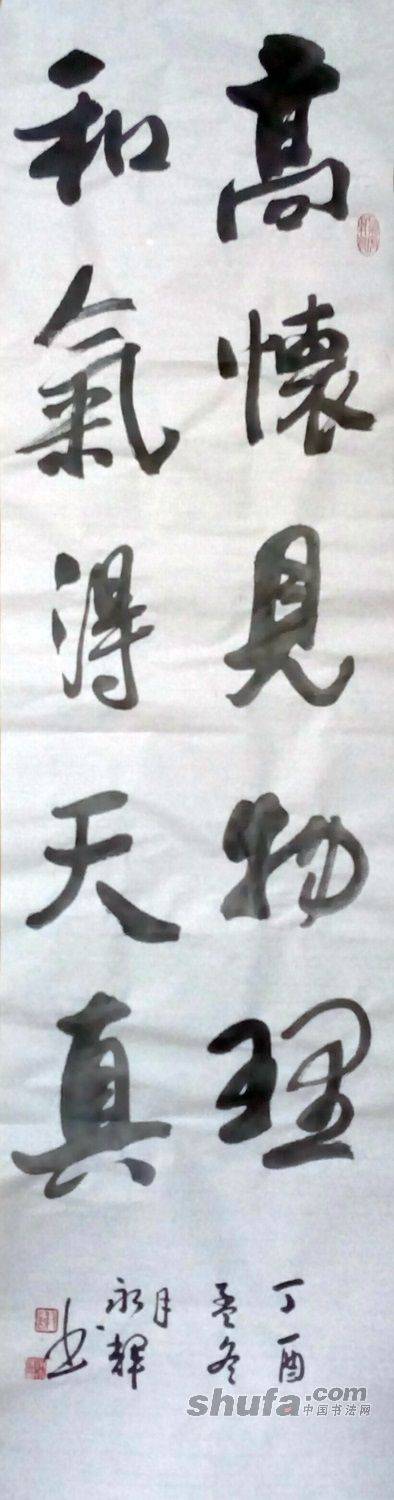 高懷見物理
和氣得天真
丁酉
孟冬
月
永輝
书
shufa.com
中国书法网